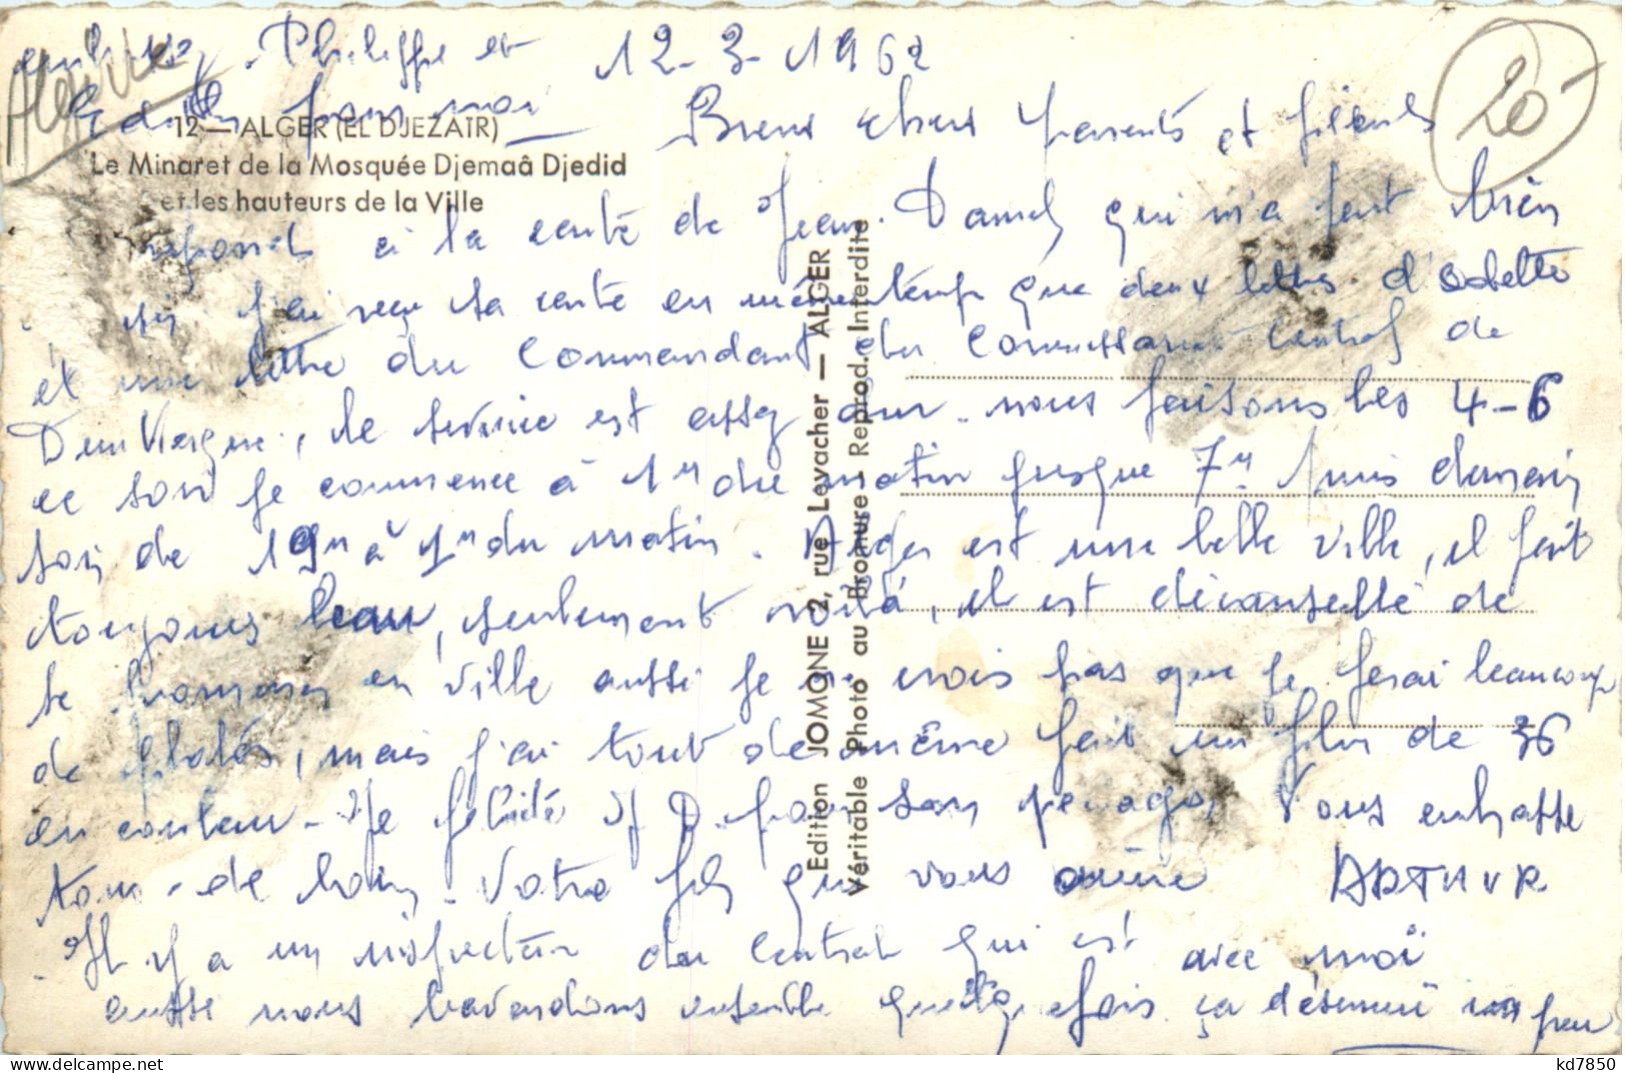 Algérie
20
Philippe et
pour moi
12-3-1962
12 — ALGER (EL DJEZAIR)
Le Minaret de la Mosquée Djemaâ Djedid
et les hauteurs de la Ville
Biens chers parents et filleuls
réponds à la carte de Jean. Daniel qui m'a fait bien
j'ai reçu ta carte en même temps que deux lettres d'Odette
et une lettre du Commandant du Commissariat Central de
le service est assez dur. nous faisons les 4-6
ce soir je commence à 1H du matin jusque 7H puis demain
soir de 19H à 1H du matin. Alger est une belle ville, il fait
toujours beau, seulement voilà, il est déconseillé de
se promener en ville aussi je ne crois pas que je ferai beaucoup
de photos, mais j'ai tout de même fait un film de 36
en couleur. Je félicite J D. pour son Vous embrasse
tous de loin. Votre fils qui vous aime ARTHUR
Il y a un inspecteur du Central qui est avec moi
aussi nous bavardons ensemble quelquefois ça désennuie un peu
Edition JOMONE 2, rue Levacher — ALGER
Véritable Photo au Bromure - Reprod. Interdite
kd7850